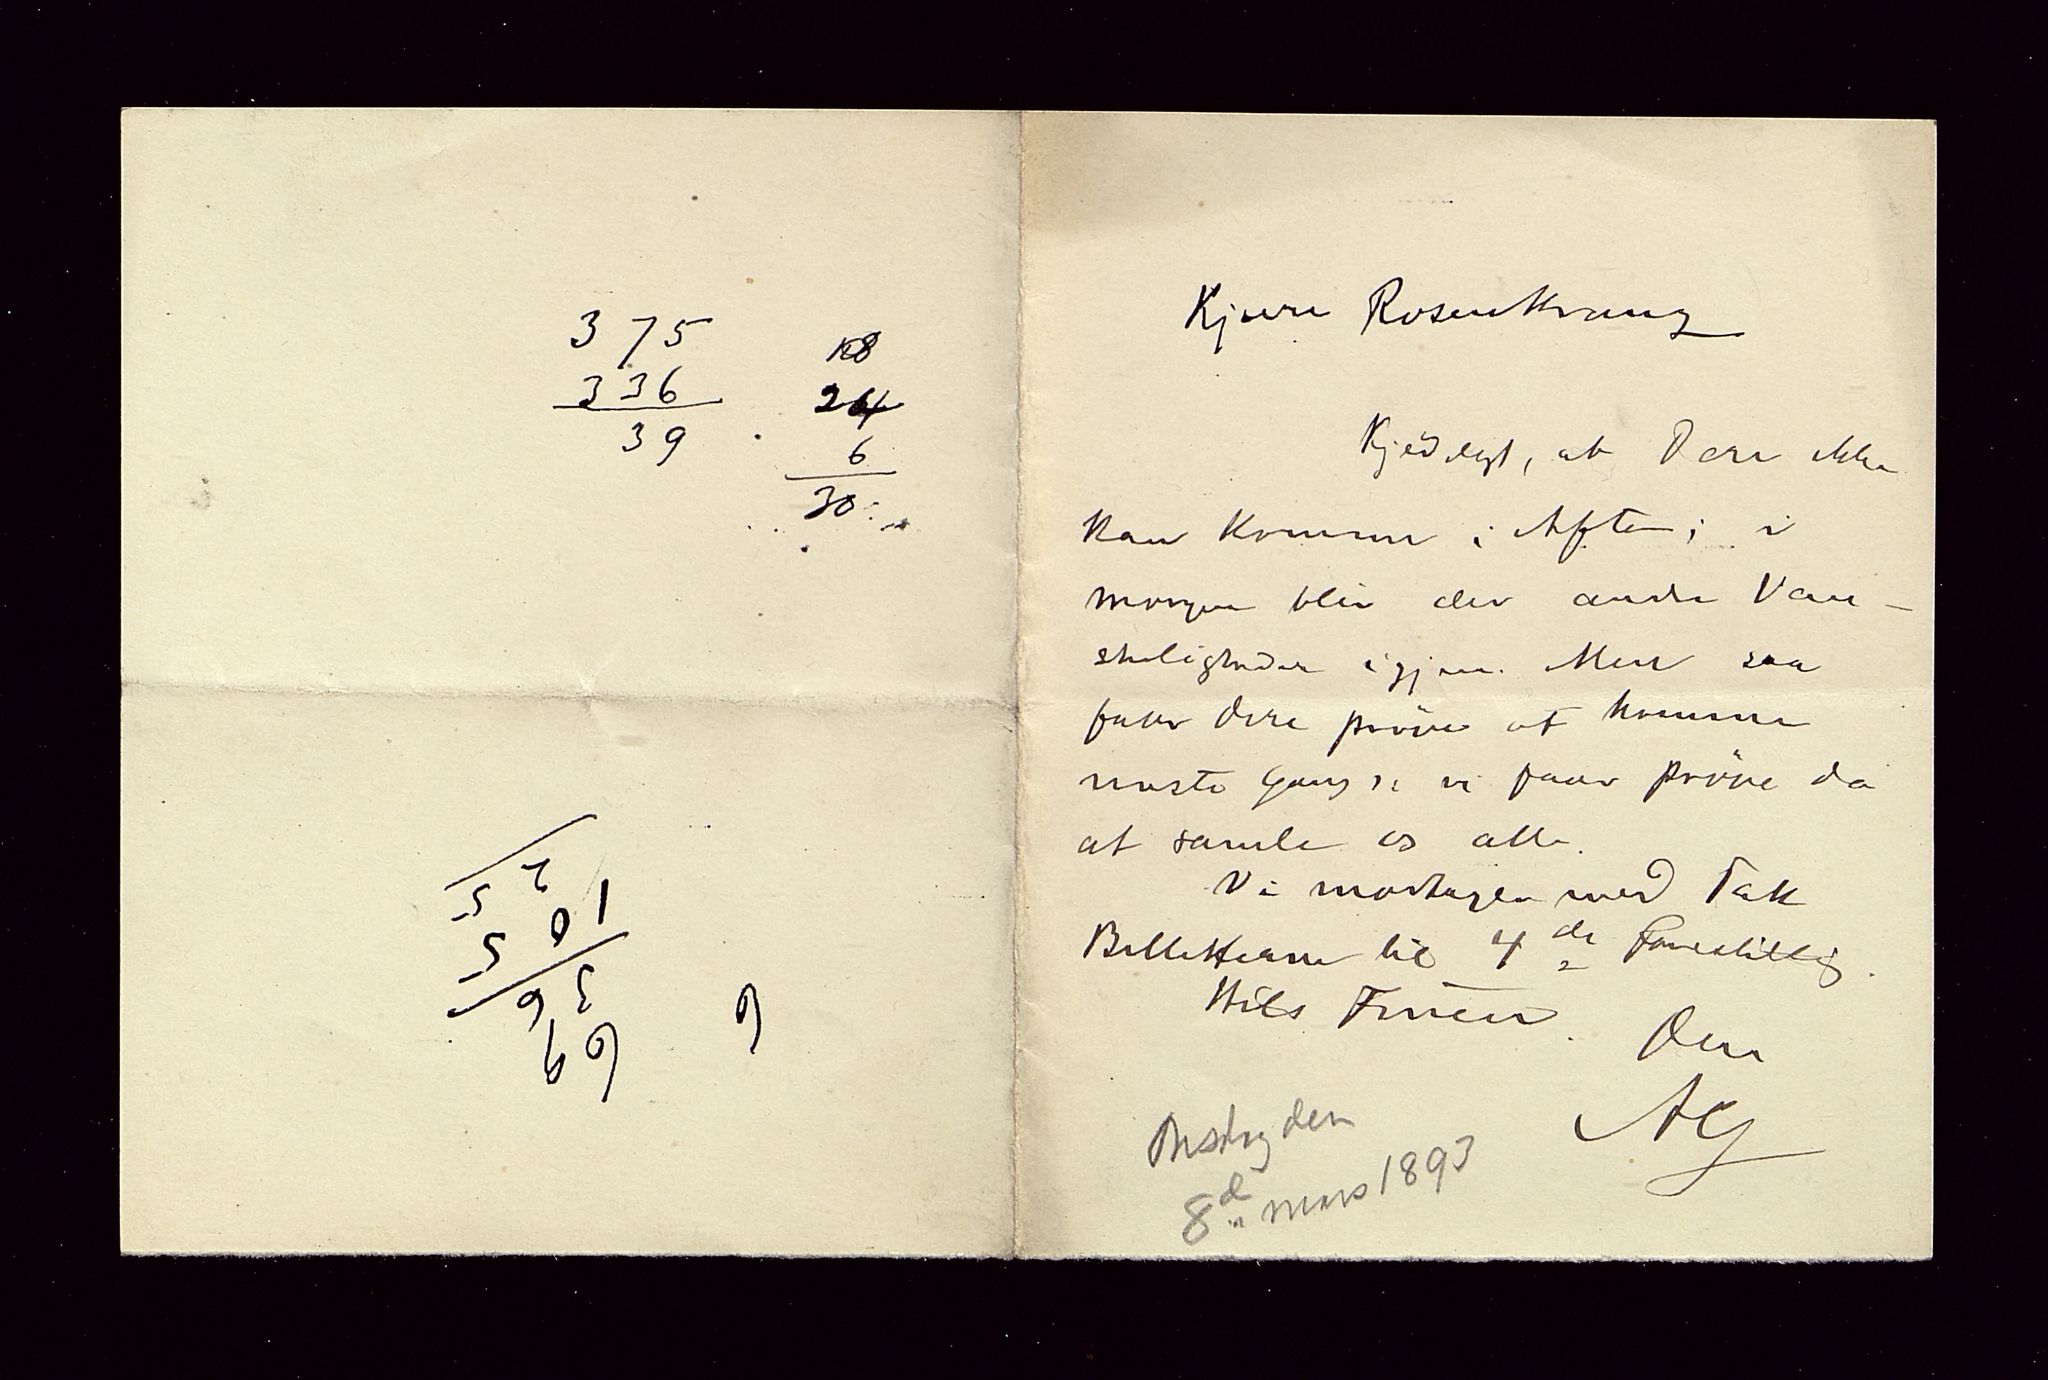 375
336
39
18
24
6
30
Kjære Rosenkranz
Kjedeligt, at Dere ikke
kan komme i Aften; i
morgen blir der andre Van-
skeligheder igjen. Men saa
faar dere prøve at komme
næste Gang; vi faar prøve da
at samle os alle.
Vi modtager med Tak
Billetterne til 4de Forestilling.
Hils Fruen. Den
AG
Onsdag den
8de Mars 1893